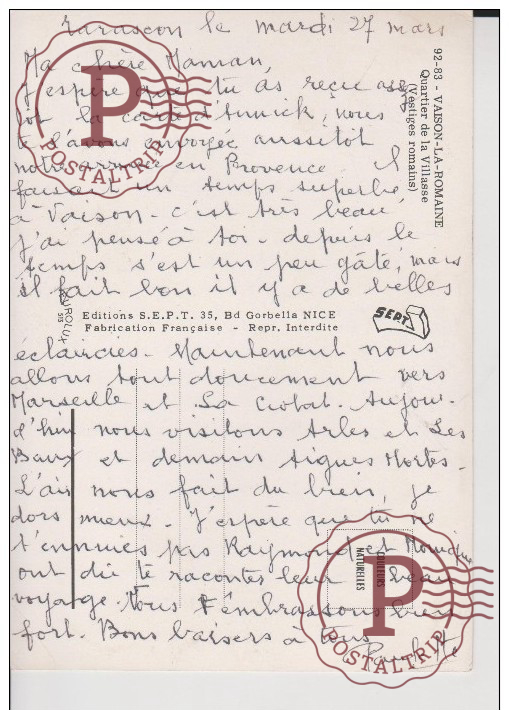 Tarascon le mardi 27 mars
Ma chère Maman,
J'espère que tu as reçue assez
tôt la carte d'Annick, nous
te l'avons envoyée aussitôt
notre arrivée en Provence. Il
faisait un temps superbe
à Vaison - c'est très beau,
j'ai pensé à toi - depuis le
temps s'est un peu gâté, mais
il fait bon il y a de belles
éclaircies. Maintenant nous
allons tout doucement vers
Marseille et La Ciotat. Aujour-
d'hui nous visitons Arles et Les
Baux et demain Aigues Mortes -
L'air nous fait du bien, je
dors mieux - J'espère que tu ne
t'ennuies pas Raymond et Monique
ont dû te racontes leur beau
voyage. Nous t'embrassons bien
fort. Bons baisers à tous
Paulette
92-83 - VAISON-LA-ROMAINE
Quartier de la Villasse
(Vestiges romains)
Editions S.E.P.T. 35, Bd Gorbella NICE
Fabrication Française - Repr. Interdite
SEPT
COULEURS
NATURELLES
P
POSTALTRIP
P
POSTALTRIP